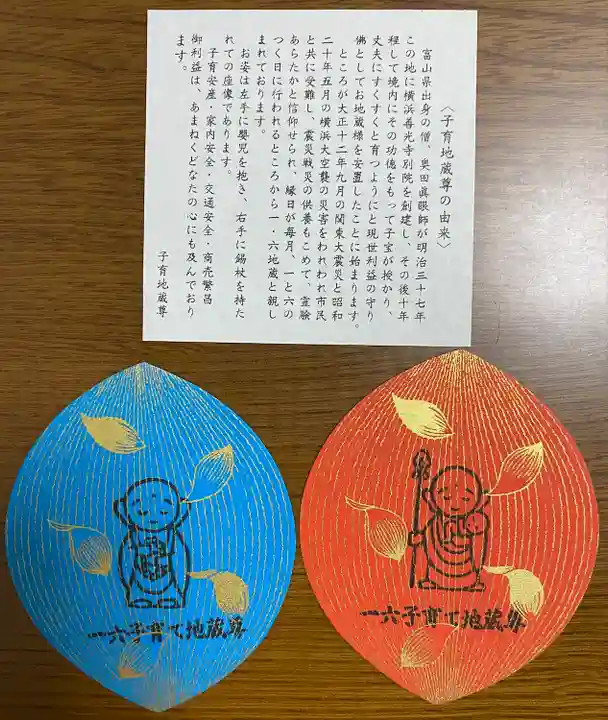 〈子育地蔵尊の由来〉
富山県出身の僧、奥田眞眼師が明治三十七年
この地に横浜善光寺別院を創建し、その後十年
程して境内にその功徳をもって子宝が授かり、
丈夫にすくすくと育つようにと現世利益の守り
佛としてお地蔵様を安置したことに始まります。
ところが大正十二年九月の関東大震災と昭和
二十年五月の横浜大空襲の災害をわれわれ市民
と共に受難し、震災戦災の供養もこめて、霊験
あらたかと信仰せられ、縁日が毎月、一と六の
つく日に行われるところから一・六地蔵と親し
まれております。
お姿は左手に嬰児を抱き、右手に錫杖を持た
れての座像であります。
子育安産・家内安全・交通安全・商売繁昌
御利益は、あまねくどなたの心にも及んでおり
ます。
子育地蔵尊
一六子育て地蔵尊
一六子育て地蔵尊